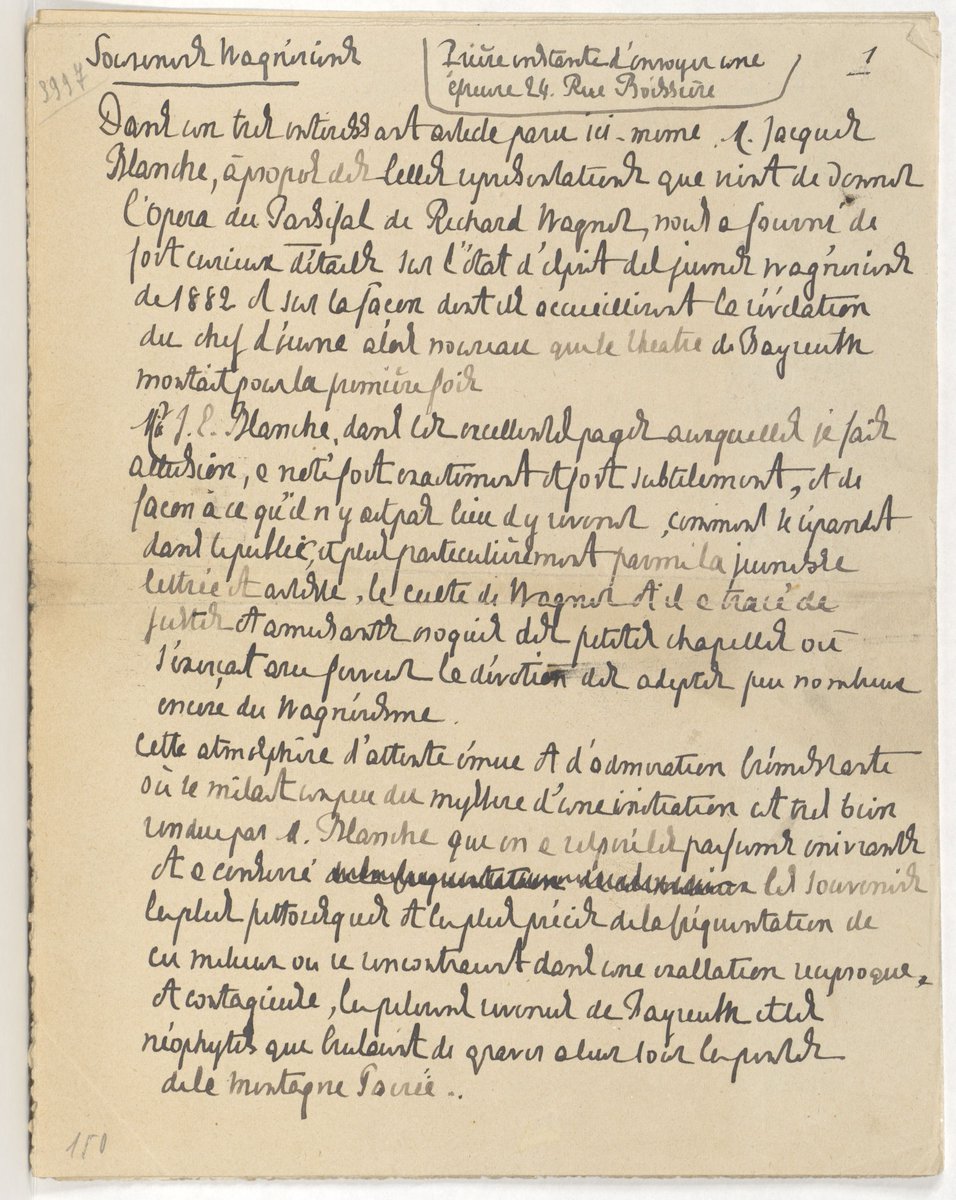 Souvenirs Wagnériens
Prière instante d'envoyer une
épreuve 24. Rue Boissière
1
3997
Dans un très intéressant article paru ici-même, M. Jacques
Blanche, à propos des belles représentations que vient de donner
l'Opera du Parsifal de Richard Wagner, nous a fourni de
fort curieux détails sur l'état d'esprit des jeunes wagnériens
de 1882 et sur la façon dont ils accueillirent la révélation
du chef d'œuvre alors nouveau que le théatre de Bayreuth
montait pour la première fois
Mr J. E. Blanche, dans les excellentes pages auxquelles je fais
allusion, a noté fort exactement et fort subtilement, et de
façon à ce qu'il n'y ait pas lieu d'y revenir, comment se répandit
dans le public, et plus particulièrement parmi la jeunesse
lettrée et artiste, le culte de Wagner et il a tracé de
justes et amusants croquis des petites chapelles où
s'exerçait avec ferveur la dévotion des adeptes peu nombreux
encore du Wagnérisme.
Cette atmosphère d'attente émue et d'admiration frémissante
où se mêlait un peu du mystère d'une initiation est très bien
rendue par M. Blanche qui en a respiré les parfums enivrants
et a conservé les souvenirs
les plus pittoresques et les plus précis de la fréquentation de
ces milieux où se rencontraient dans une exaltation reciproque
et contagieuse, les pélerins revenus de Bayreuth et les
néophytes qui brulaient de gravir à leur tour les pentes
de la montagne Sacrée..
150